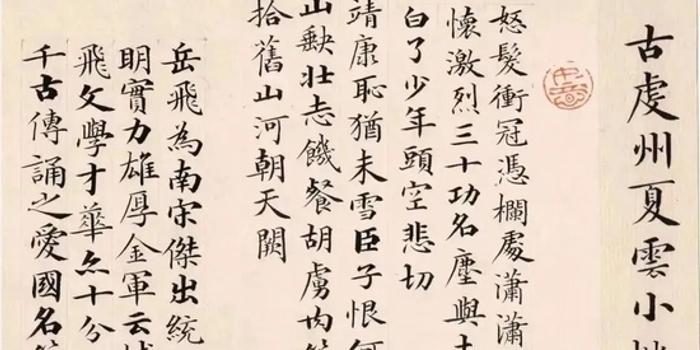 古虔州夏雲小
怒髮衝冠憑欄處瀟瀟
懷激烈三十功名塵與
白了少年頭空悲切
靖康恥猶未雪臣子恨何
山缺壯志饑餐胡虜肉
拾舊山河朝天闕
岳飛為南宋傑出統
明實力雄厚金軍云
飛文學才華亦十分
千古傳誦之愛國名